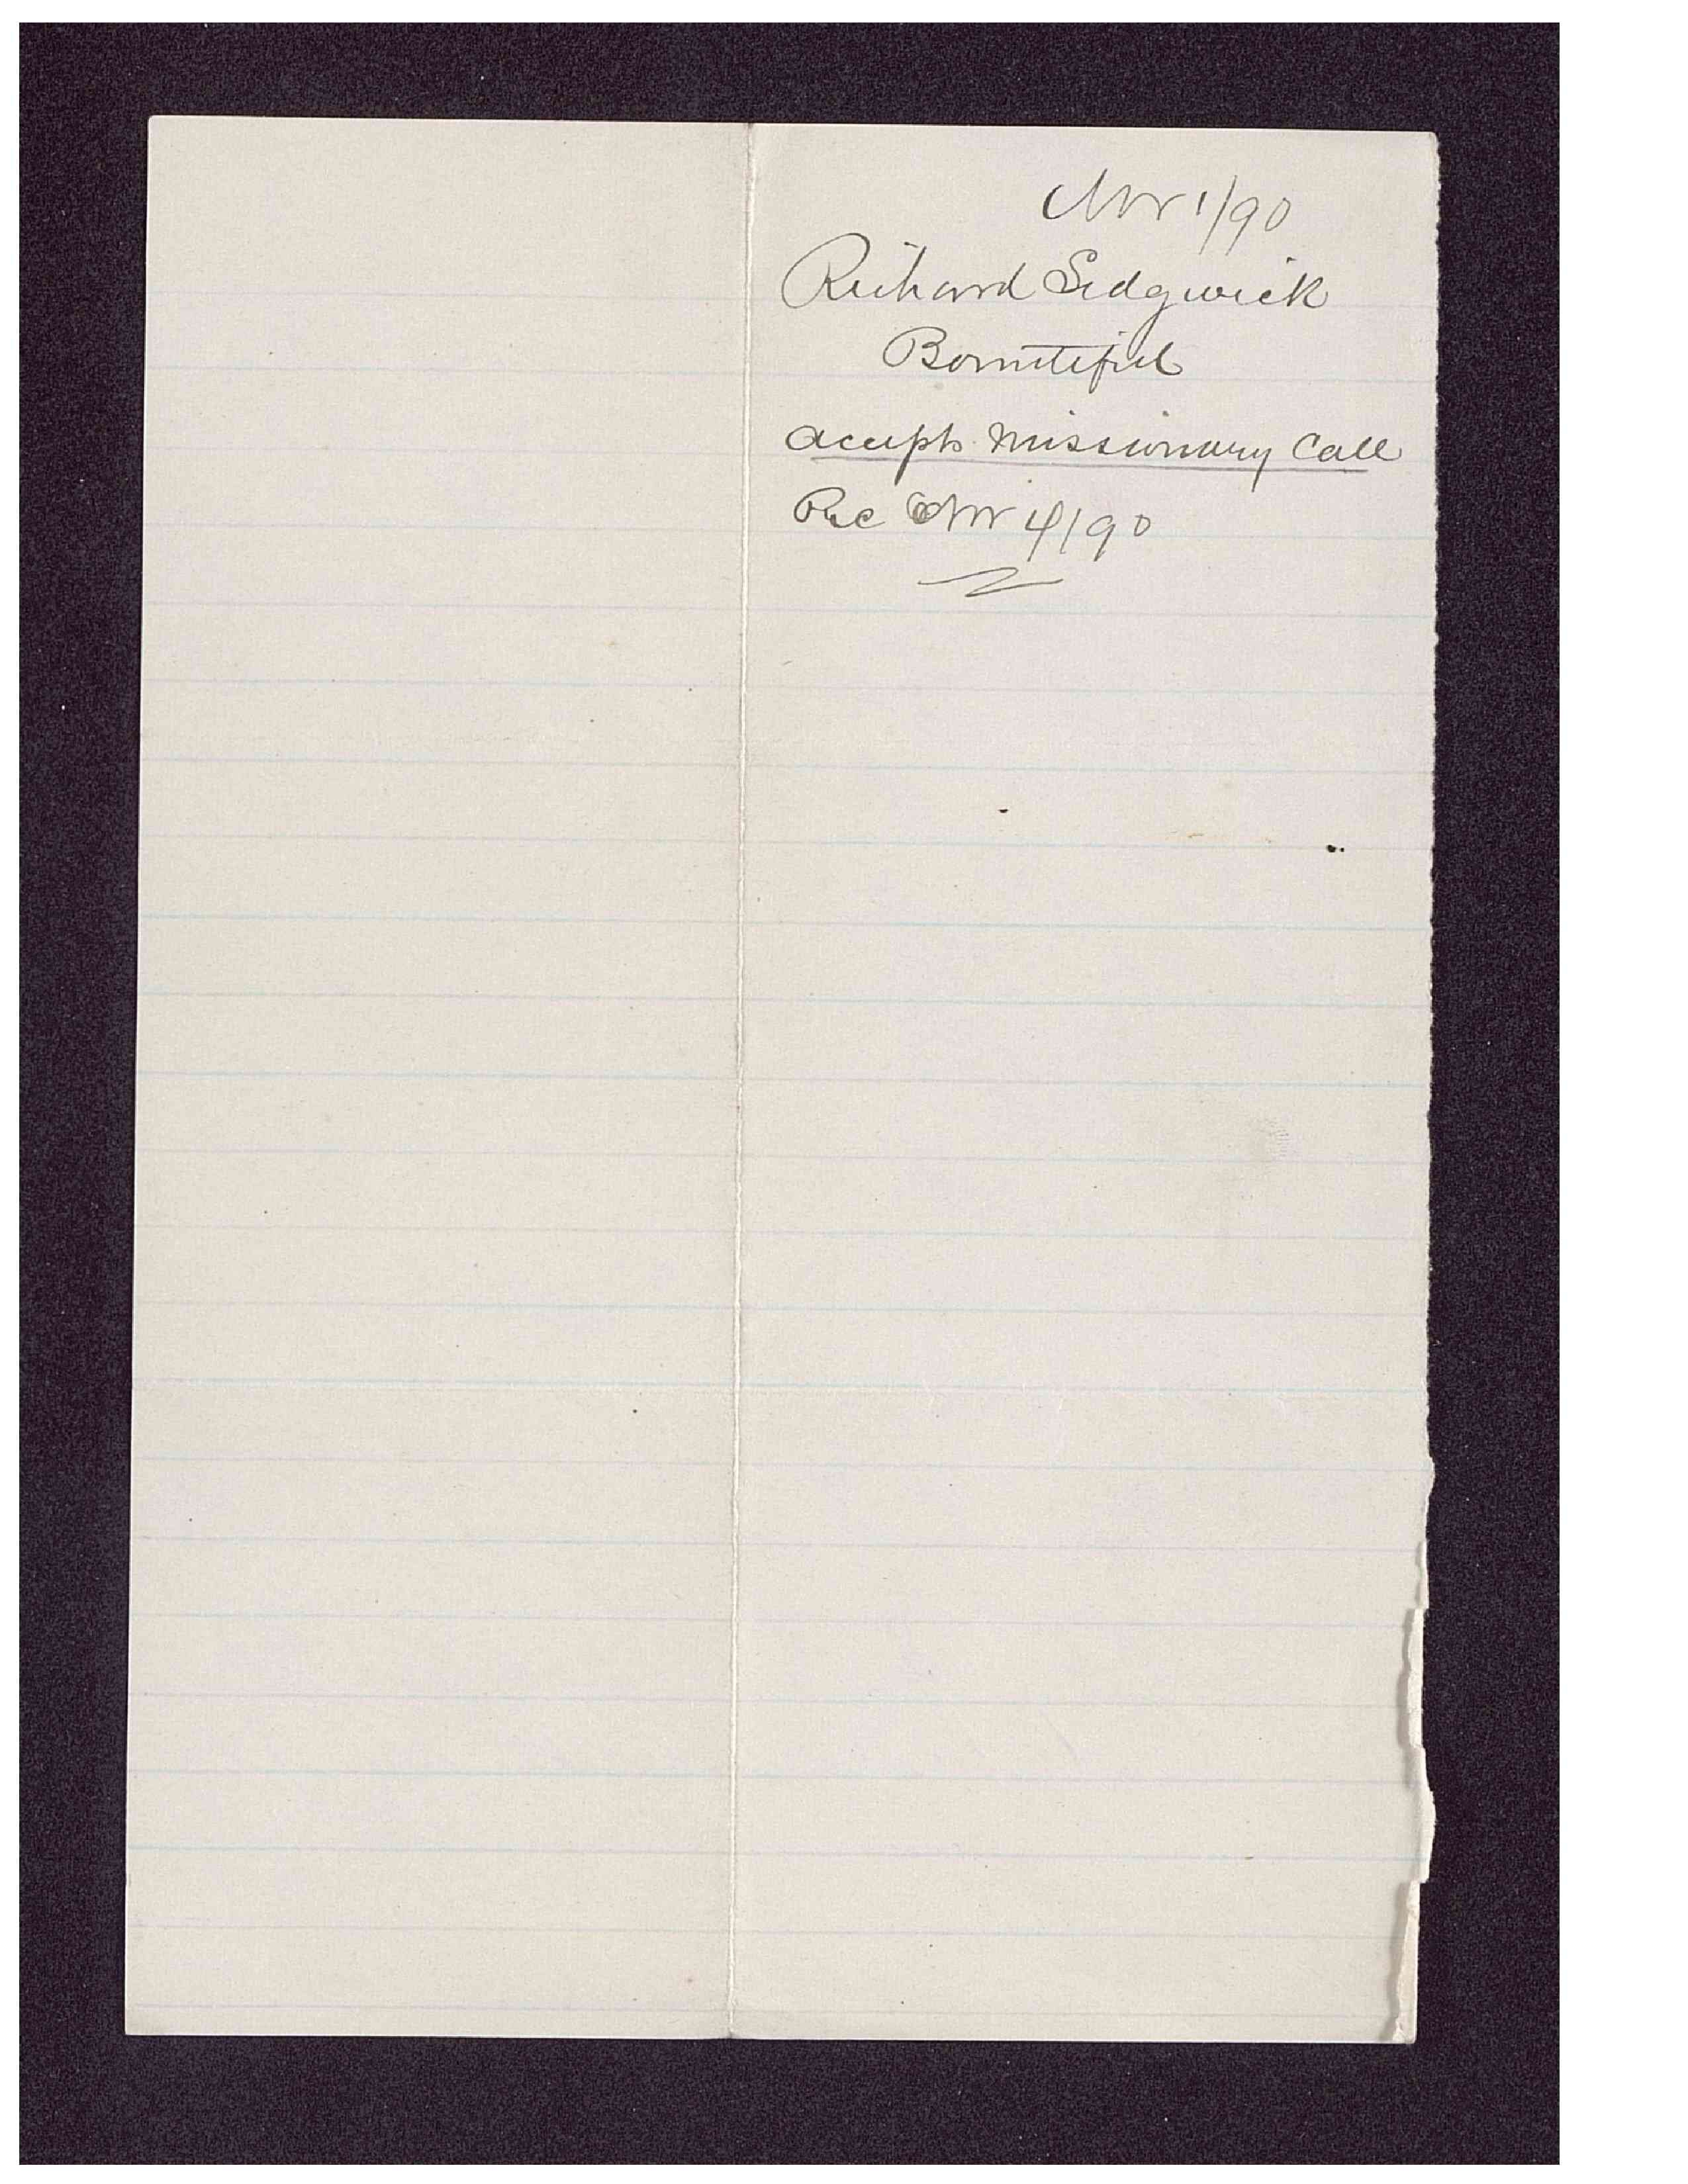 Nov 1/90
Richard Sedgwick
Bountiful
accepts missionary Call
Rec Nov 4/90